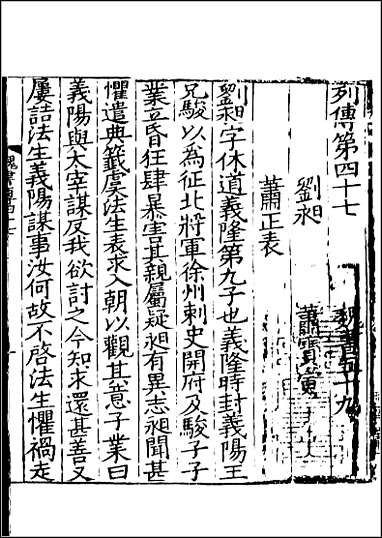 列傳第四十七 魏書五十九
劉昶 蕭寶夤
蕭正表
劉昶字休道義隆第九子也義隆時封義陽王
兄駿以為征北將軍徐州刺史開府及駿子子
業立昏狂肆暴害其親屬疑昶有異志昶聞甚
懼遣典籤虞法生表求入朝以觀其意子業曰
義陽與太宰謀反我欲討之今知求還甚善又
屢詰法生義陽謀事汝何故不啓法生懼禍走